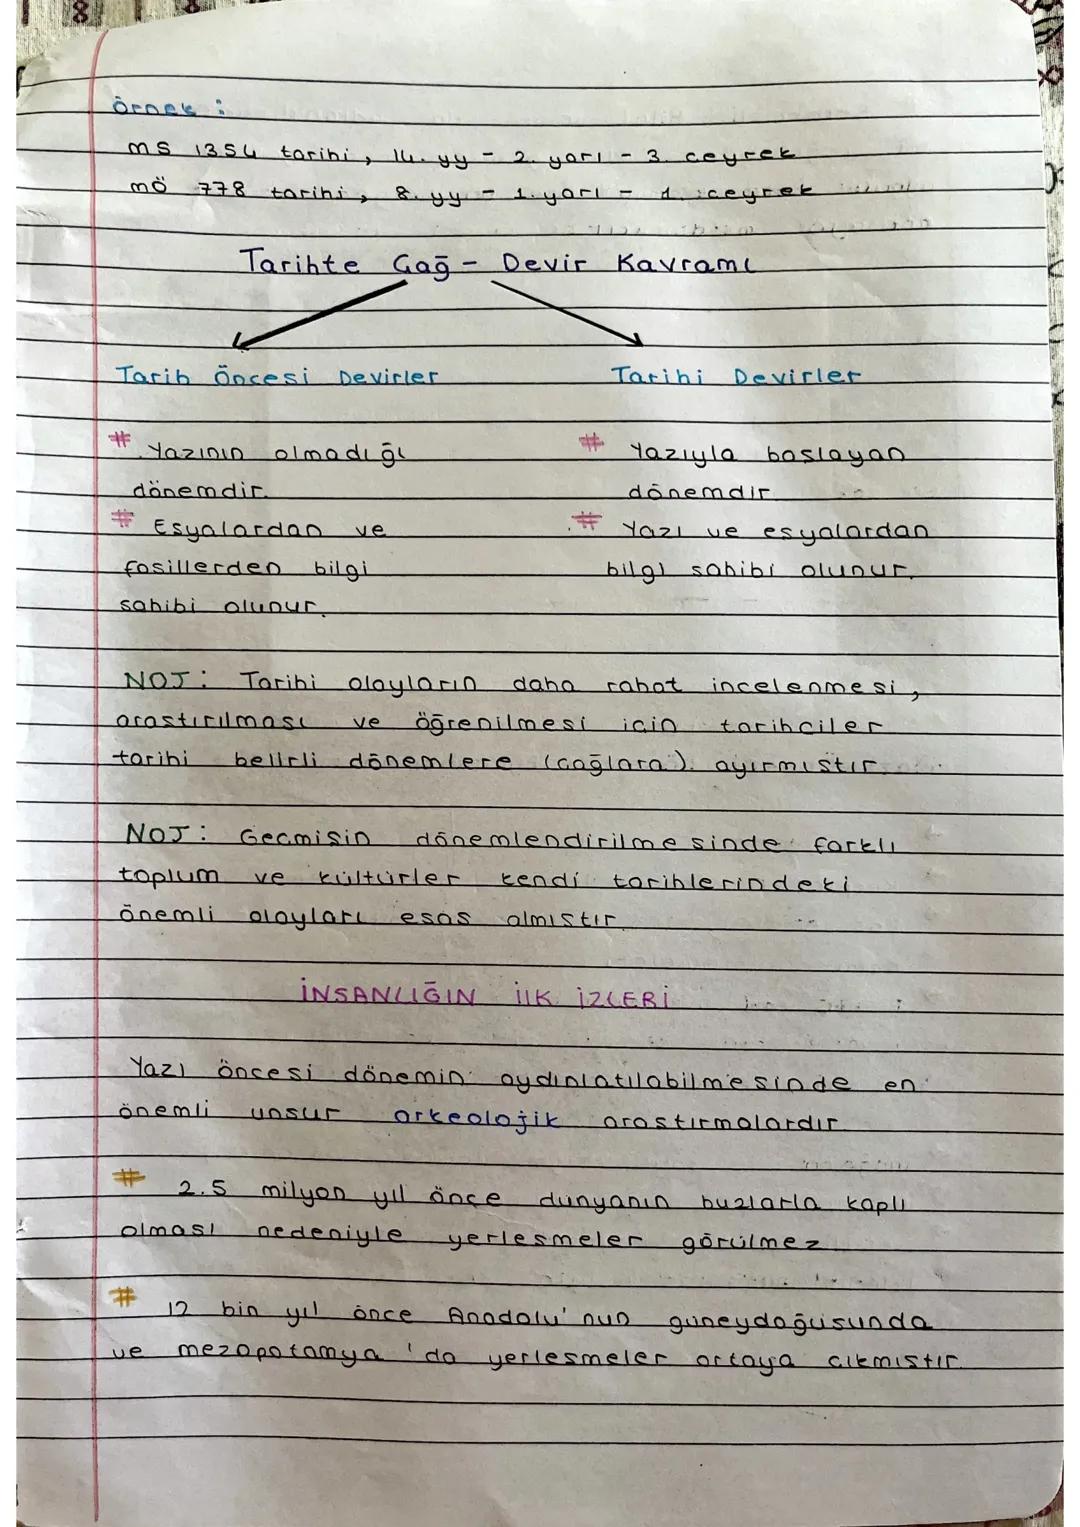 Örnek :
MS 1354 tarihi, 14. yy - 2. yarı - 3. ceyrek
MÖ 778 tarihi, 8. yy - 1. yarı - 1. ceyrek
Tarihte Gağ - Devir Kavramı
Tarih Öncesi Devirler
Tarihi Devirler
# Yazının olmadığı
dönemdir.
# Esyalardan ve
fosillerden bilgi
sahibi olunur.
# Yazıyla baslayan
dönemdir
# Yazı ve esyalardan
bilgi sahibi olunur.
NOT: Tarihi olayların daha rahat incelenmesi,
arastırılması ve öğrenilmesi icin tarihciler
tarihi belirli dönemlere (cağlara) ayırmıstır.
NOT: Gecmisin dönemlendirilmesinde farklı
toplum ve kültürler kendi tarihlerindeki
önemli olayları esas almıstır.
İNSANLIĞIN İLK İZLERİ
Yazı öncesi dönemin aydınlatılabilmesinde en
önemli unsur arkeolojik arastırmalardır.
# 2.5 milyon yıl önce dünyanın buzlarla kaplı
olması nedeniyle yerlesmeler görülmez.
# 12 bin yıl önce Anadolu'nun güneydoğusunda
ve mezopotamya'da yerlesmeler ortaya cıkmıstır.